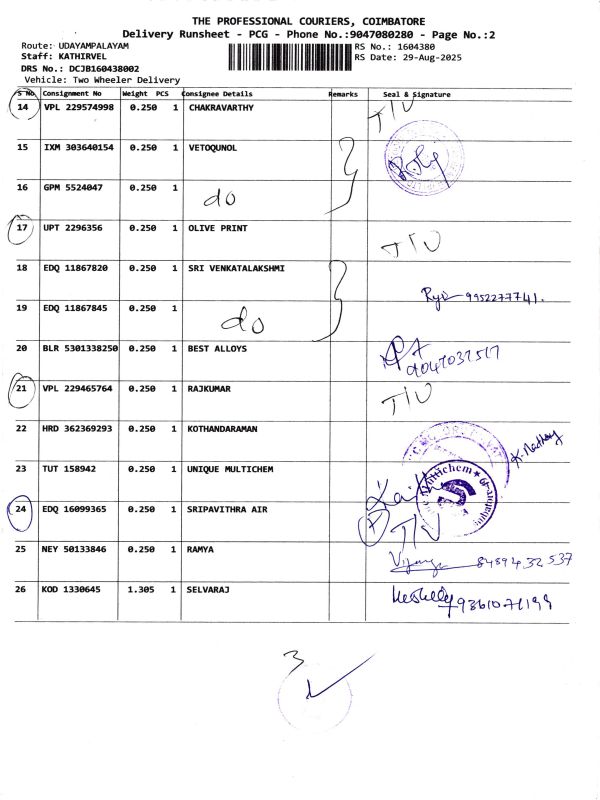 THE PROFESSIONAL COURIERS, COIMBATORE
Delivery Runsheet - PCG - Phone No.:9047080280 - Page No.:2
Route: UDAYAMPALAYAM RS No.: 1604380
Staff: KATHIRVEL RS Date: 29-Aug-2025
DRS No.: DCJB160438002
Vehicle: Two Wheeler Delivery
S No. Consignment No Weight PCS Consignee Details Remarks Seal & Signature
14 VPL 229574998 0.250 1 CHAKRAVARTHY
15 IXM 303640154 0.250 1 VETOQUNOL
16 GPM 5524047 0.250 1 do
17 UPT 2296356 0.250 1 OLIVE PRINT
18 EDQ 11867820 0.250 1 SRI VENKATALAKSHMI 9952277741.
19 EDQ 11867845 0.250 1 do
20 BLR 5301338250 0.250 1 BEST ALLOYS
21 VPL 229465764 0.250 1 RAJKUMAR
22 HRD 362369293 0.250 1 KOTHANDARAMAN
23 TUT 158942 0.250 1 UNIQUE MULTICHEM Multichem
24 EDQ 16099365 0.250 1 SRIPAVITHRA AIR
25 NEY 50133846 0.250 1 RAMYA 8489432537
26 KOD 1330645 1.305 1 SELVARAJ
3